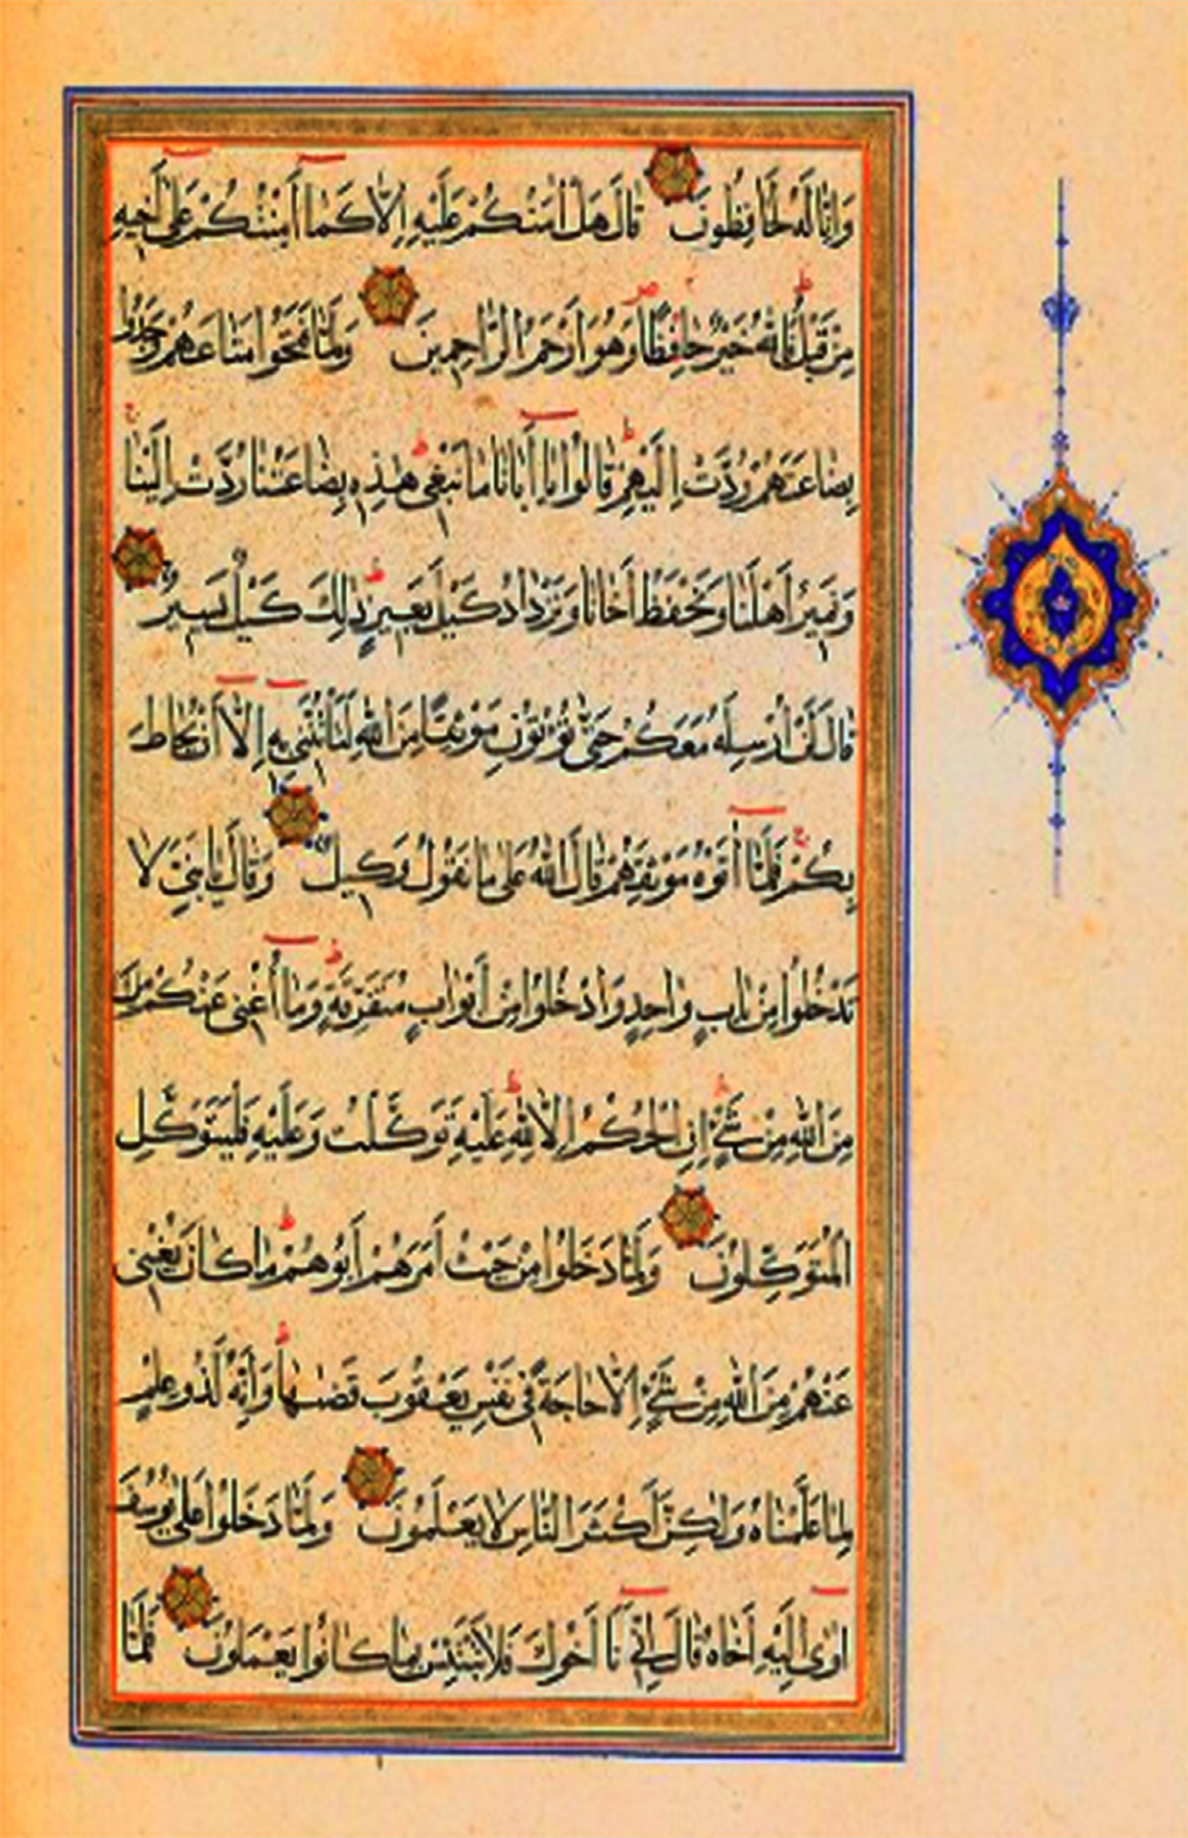 وَاِنَّا لَهُ لَحَافِظُونَ قَالَ هَلْ اٰمَنُكُمْ عَلَيْهِ اِلَّا كَمَا اَمِنْتُكُمْ عَلٰى اَخِيهِ
مِنْ قَبْلُ فَاللّٰهُ خَيْرٌ حَافِظًا وَهُوَ اَرْحَمُ الرَّاحِمِينَ وَلَمَّا فَتَحُوا مَتَاعَهُمْ وَجَدُوا
بِضَاعَتَهُمْ رُدَّتْ اِلَيْهِمْ قَالُوا يَا اَبَانَا مَا نَبْغِى هٰذِهِ بِضَاعَتُنَا رُدَّتْ اِلَيْنَا
وَنَمِيرُ اَهْلَنَا وَنَحْفَظُ اَخَانَا وَنَزْدَادُ كَيْلَ بَعِيرٍ ذٰلِكَ كَيْلٌ يَسِيرٌ
قَالَ لَنْ اُرْسِلَهُ مَعَكُمْ حَتّٰى تُؤْتُونِ مَوْثِقًا مِنَ اللّٰهِ لَتَأْتُنَّنِى بِهِ اِلَّا اَنْ يُحَاطَ
بِكُمْ فَلَمَّا اٰتَوْهُ مَوْثِقَهُمْ قَالَ اللّٰهُ عَلٰى مَا نَقُولُ وَكِيلٌ وَقَالَ يَا بَنِىَّ لَا
تَدْخُلُوا مِنْ بَابٍ وَاحِدٍ وَادْخُلُوا مِنْ اَبْوَابٍ مُتَفَرِّقَةٍ وَمَا اُغْنِى عَنْكُمْ مِنَ
مِنَ اللّٰهِ مِنْ شَىْءٍ اِنِ الْحُكْمُ اِلَّا لِلّٰهِ عَلَيْهِ تَوَكَّلْتُ وَعَلَيْهِ فَلْيَتَوَكَّلِ
الْمُتَوَكِّلُونَ وَلَمَّا دَخَلُوا مِنْ حَيْثُ اَمَرَهُمْ اَبُوهُمْ مَا كَانَ يُغْنِى
عَنْهُمْ مِنَ اللّٰهِ مِنْ شَىْءٍ اِلَّا حَاجَةً فِى نَفْسِ يَعْقُوبَ قَضٰيهَا وَاِنَّهُ لَذُو عِلْمٍ
لِمَا عَلَّمْنَاهُ وَلٰكِنَّ اَكْثَرَ النَّاسِ لَا يَعْلَمُونَ وَلَمَّا دَخَلُوا عَلٰى يُوسُفَ
اٰوٰى اِلَيْهِ اَخَاهُ قَالَ اِنِّى اَنَا اَخُوكَ فَلَا تَبْتَئِسْ بِمَا كَانُوا يَعْمَلُونَ فَلَمَّا